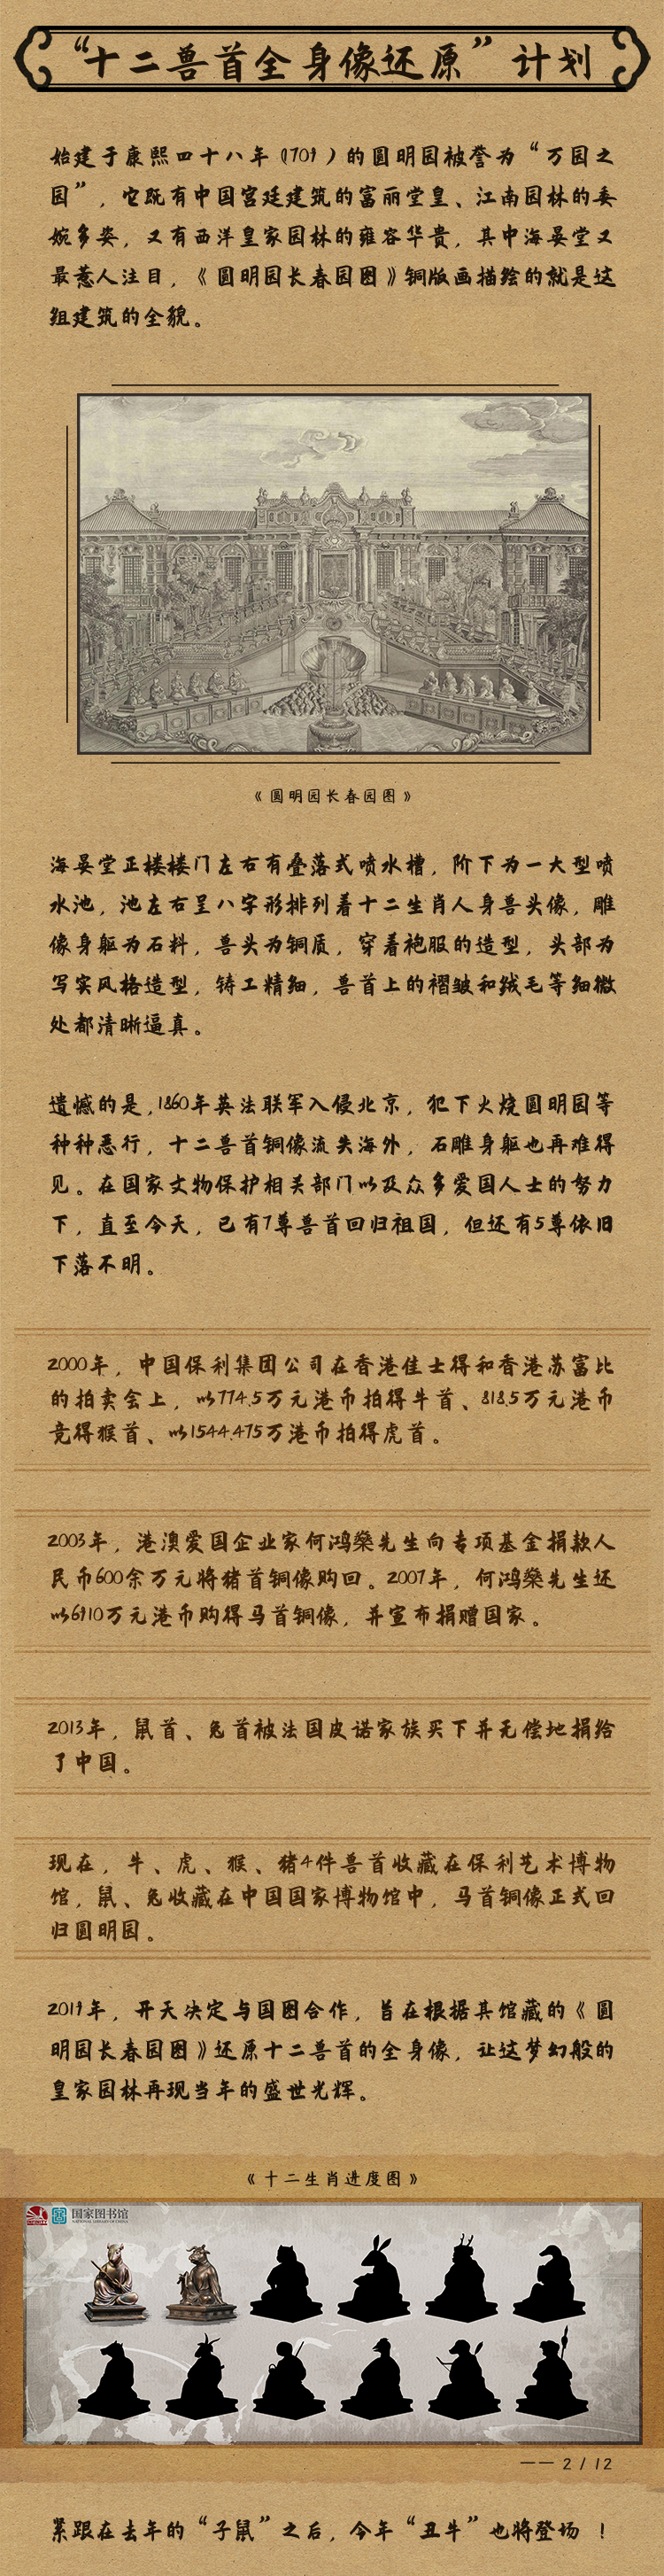 “十二兽首全身像还原”计划
始建于康熙四十八年（1709）的圆明园被誉为“万园之
园”，它既有中国宫廷建筑的富丽堂皇、江南园林的委
婉多姿，又有西洋皇家园林的雍容华贵，其中海晏堂又
最惹人注目，《圆明园长春园图》铜版画描绘的就是这
组建筑的全貌。
《圆明园长春园图》
海晏堂正楼楼门左右有叠落式喷水槽，阶下为一大型喷
水池，池左右呈八字形排列着十二生肖人身兽头像，雕
像身躯为石料，兽头为铜质，穿着袍服的造型，头部为
写实风格造型，铸工精细，兽首上的褶皱和绒毛等细微
处都清晰逼真。
遗憾的是，1860年英法联军入侵北京，犯下火烧圆明园等
种种恶行，十二兽首铜像流失海外，石雕身躯也再难得
见。在国家文物保护相关部门以及众多爱国人士的努力
下，直至今天，已有7尊兽首回归祖国，但还有5尊依旧
下落不明。
2000年，中国保利集团公司在香港佳士得和香港苏富比
的拍卖会上，以774.5万元港币拍得牛首、818.5万元港币
竞得猴首、以1544.475万港币拍得虎首。
2003年，港澳爱国企业家何鸿燊先生向专项基金捐款人
民币600余万元将猪首铜像购回。2007年，何鸿燊先生还
以6910万元港币购得马首铜像，并宣布捐赠国家。
2013年，鼠首、兔首被法国皮诺家族买下并无偿地捐给
了中国。
现在，牛、虎、猴、猪4件兽首收藏在保利艺术博物
馆，鼠、兔收藏在中国国家博物馆中，马首铜像正式回
归圆明园。
2019年，开天决定与国图合作，旨在根据其馆藏的《圆
明园长春园图》还原十二兽首的全身像，让这梦幻般的
皇家园林再现当年的盛世光辉。
《十二生肖进度图》
国家图书馆
NATIONAL LIBRARY OF CHINA
—— 2 / 12
紧跟在去年的“子鼠”之后，今年“丑牛”也将登场！